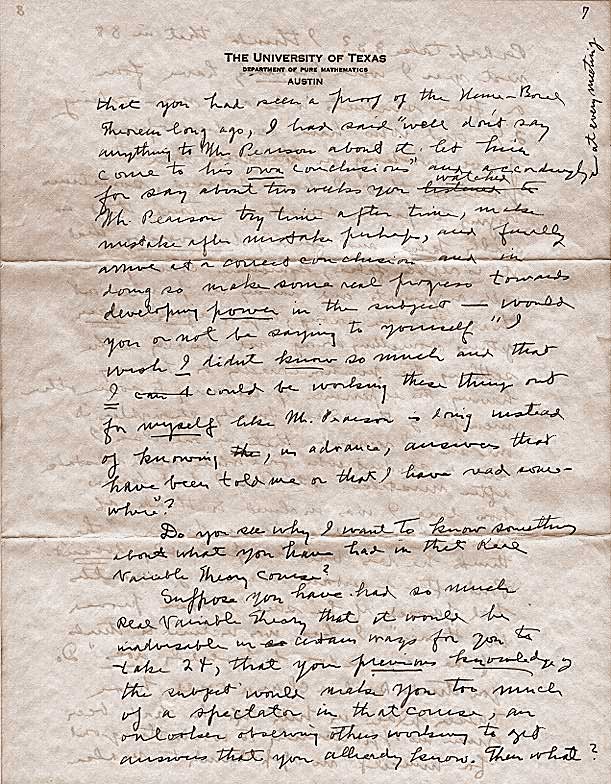 8
7
THE UNIVERSITY OF TEXAS
DEPARTMENT OF PURE MATHEMATICS
AUSTIN
at every meeting
that you had seen a proof of the Heine-Borel
Theorem long ago, I had said "well don't say
anything to Mr. Pearson about it. let him
come to his own conclusions" and accordingly,
for say about two weeks you listened watched to
Mr. Pearson try time after time, make
mistake after mistake perhaps, and finally
arrive at a correct conclusion and in
doing so make some real progress towards
developing power in the subject — would
you or not be saying to yourself "I
wish I didn't know so much and that
I can't could be working these things out
for myself like Mr. Pearson is doing instead
of knowing the, in advance, answers that
have been told me or that I have read some-
where"?
Do you see why I want to know something
about what you have had in that Real
Variable Theory course?
Suppose you have had so much
Real Variable Theory that it would be
inadvisable in so certain ways for you to
take 24, that your previous knowledge of
the subject would make you too much
of a spectator in that course, an
onlooker observing others working to get
answers that you already know. Then what?